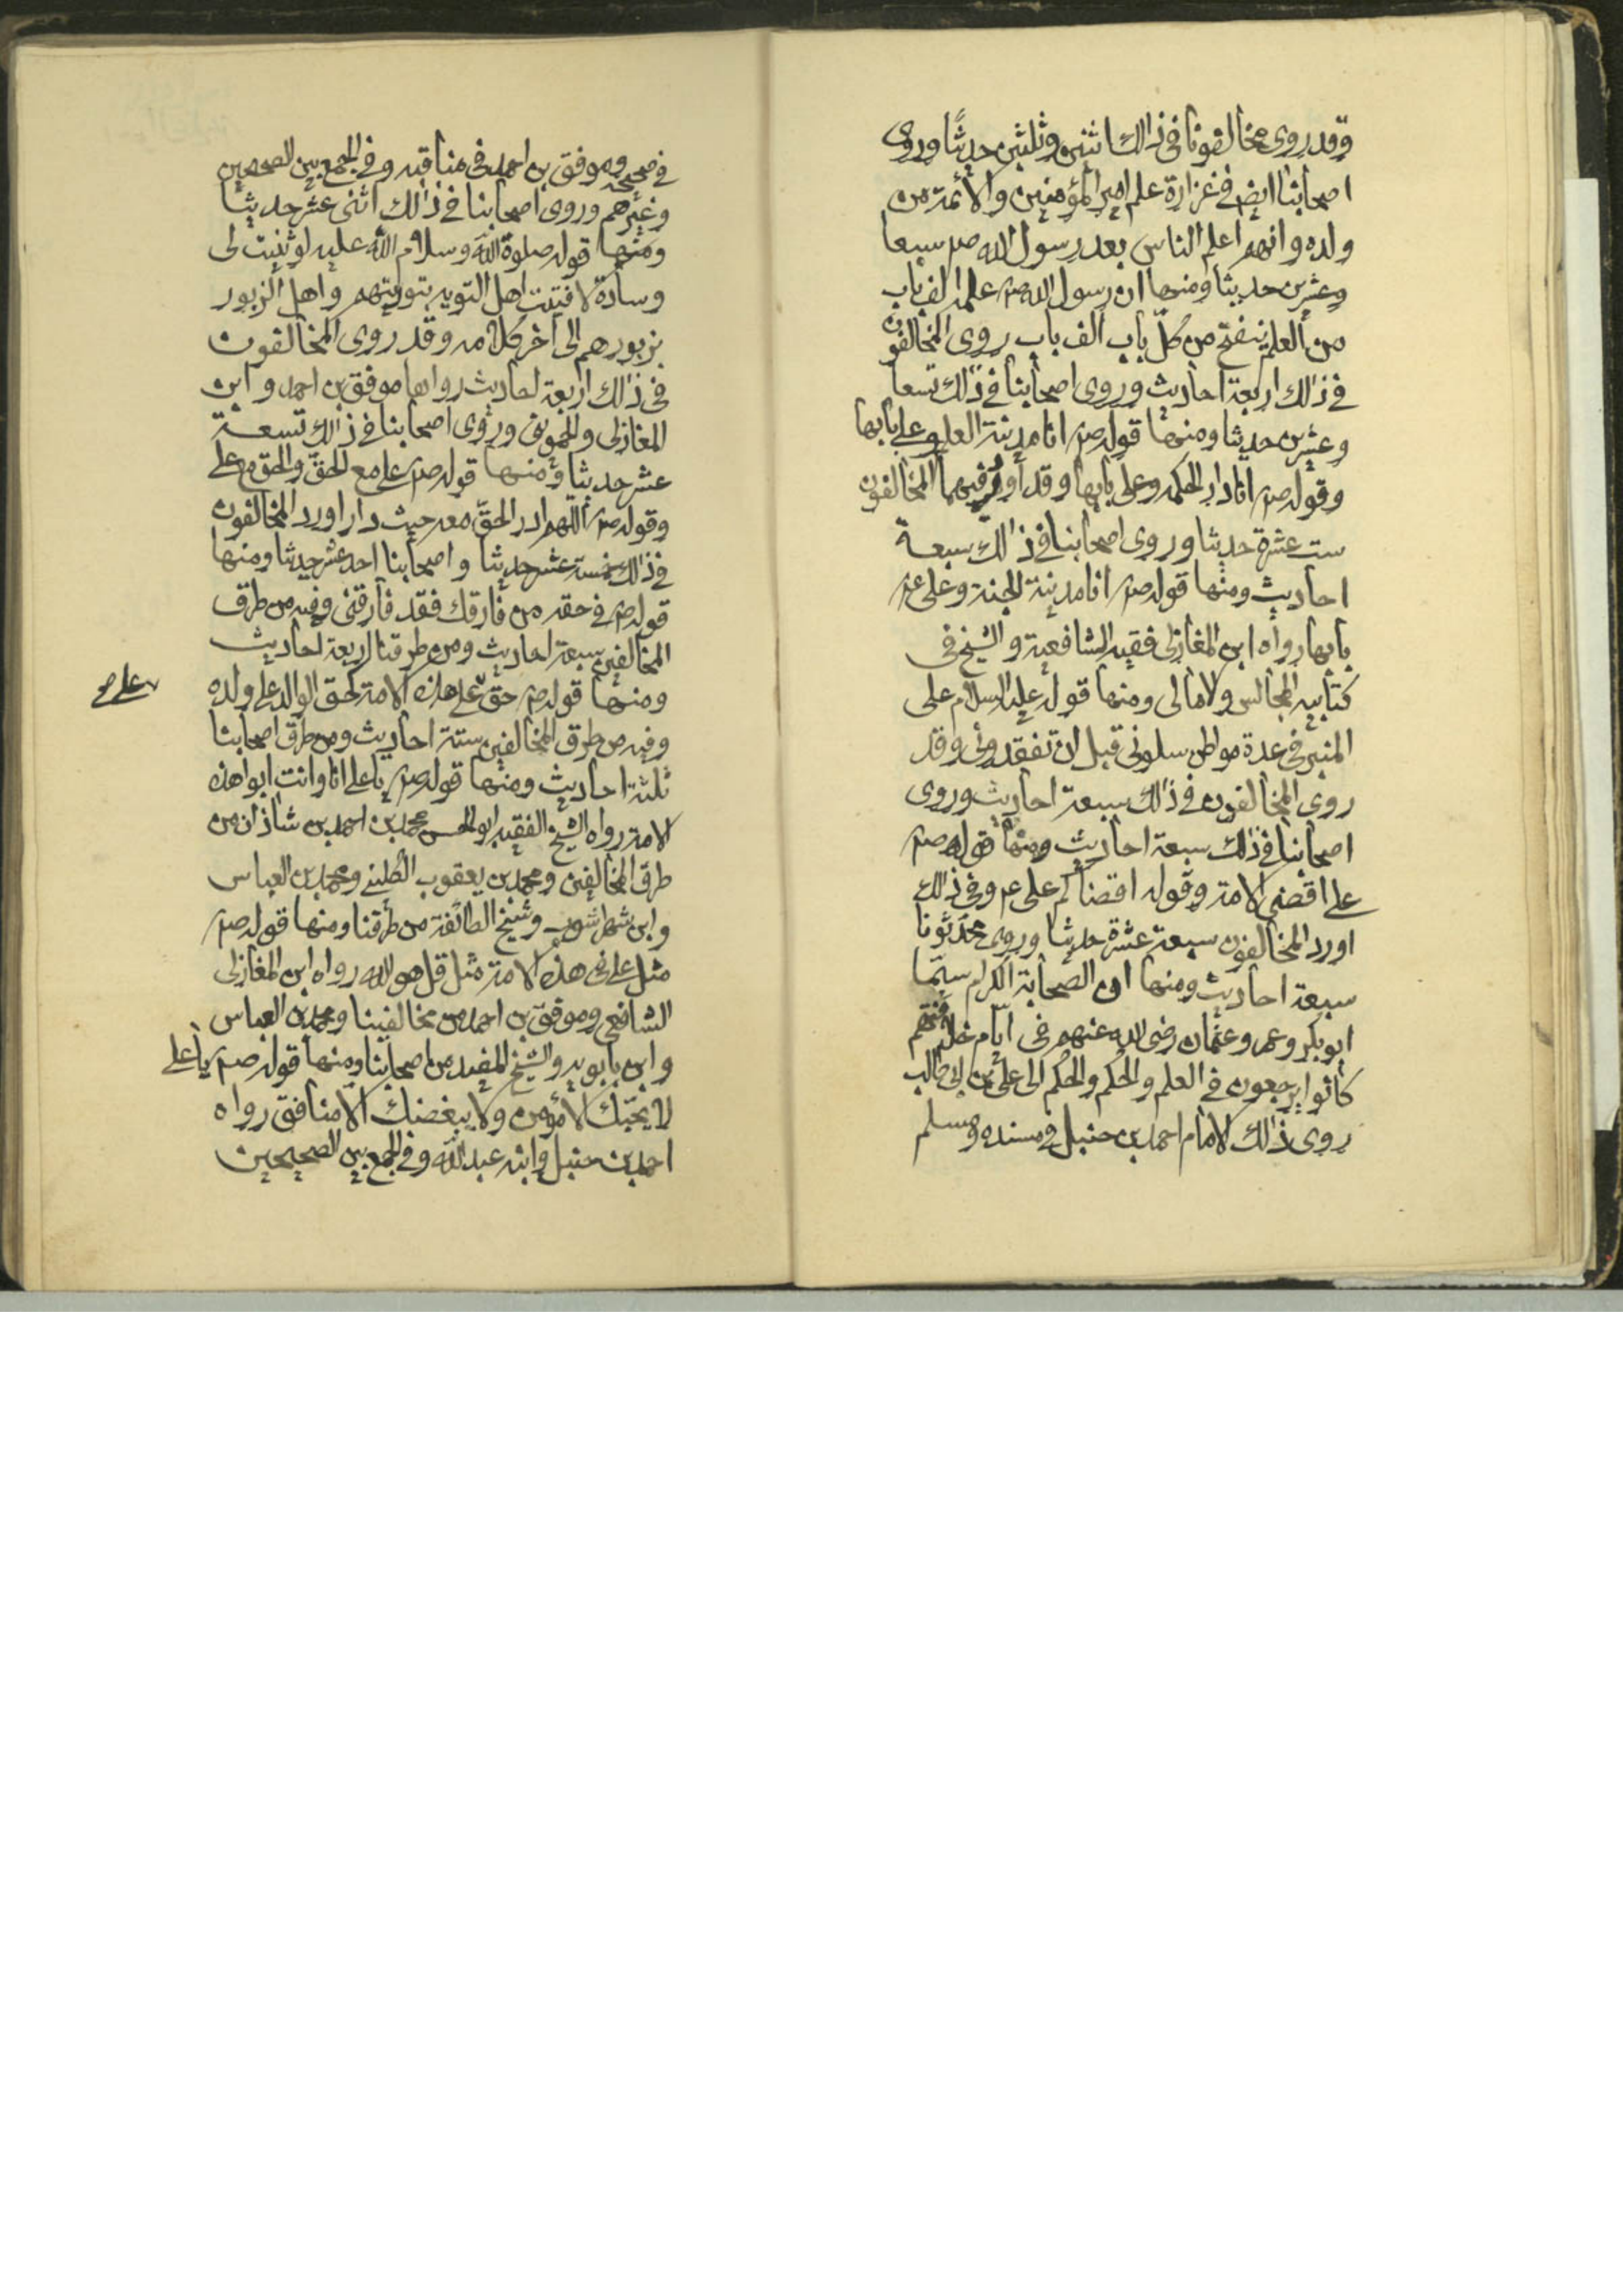 وقد روى مخالفونا فى ذالك اثنين وثلثين حديثًا وروى
اصحابنا ايض فى غزارة علم امير المؤمنين والائمة من
ولده وانهم اعلم الناس بعد رسول الله صم سبعا
وعشرين حديثا ومنها ان رسول الله صم علمه الف باب
من العلم ينفتح من كلّ باب الف باب روى المخالفون
فى ذالك اربعة احاديث وروى اصحابنا فى ذالك تسعا
وعشرين حديثا ومنها قوله صم انا مدينة العلم وعلى بابها
وقوله صم انا دار الحكمه وعلى بابها وقد اورد فيهما المخالفون
ست عشرة حديثا وروى اصحابنا فى ذالك سبعة
احاديث ومنها قوله صم انا مدينة الجنة وعلى عم
بابها رواه ابن المغازلى فقيه الشافعية والشيخ فى
كتابيه المجالس والامالى ومنها قوله عليه السلام على
المنبر فى عدة مواطن سلونى قبل ان تفقدونى وقد
روى المخالفون فى ذالك سبعة احاديث وروى
اصحابنا فى ذلك سبعة احاديث ومنها قوله صم
على اقضى الامة وقوله اقضاكم على عم وفى ذالك
اورد المخالفون سبعة عشرة حديثا وروى محدثونا
سبعة احاديث ومنها ان الصحابة الكرام سيّما
ابو بكر وعمر وعثمان رضى الله عنهم فى ايّام خلافتهم
كانوا يرجعون فى العلم والحُكم والحِكم الى على بن ابى طالب
روى ذالك الامام احمد بن حنبل فى مسنده ومسلم
فى صحيحه وموفق بن احمد فى مناقبه وفى الجمع بين الصحيحين
وغيرهم وروى اصحابنا فى ذالك اثنى عشر حديثا
ومنها قوله صلوة الله وسلام الله عليه لو ثنيت لى
وسادة لافتيت اهل التوية بتوريتهم واهل الزبور
بزبورهم الى اخر كلامه وقد روى المخالفون
فى ذالك اربعة احاديث رواها موفق بن احمد وابن
المغازلى والحموينى وروى اصحابنا فى ذالك تسعة
عشر حديثا ومنها قوله صم على مع الحقّ والحق مع على
وقوله صم اللهم ادر الحقّ معه حيث دار اورد المخالفون
فى ذلك خمسة عشر حديثا واصحابنا احد عشر حديثا ومنها
قوله صم فى حقه من فارقك فقد فارقنى وفيه من طرق
المخالفين سبعة احاديث ومن طرقنا اربعة احاديث
ومنها قوله صم حق على هذه الامة كحق الوالد على ولده
على صح
وفيه من طرق المخالفين ستة احاديث ومن طرق اصحابنا
ثلثة احاديث ومنها قوله صم يا على انا وانت ابوا هذه
الامة رواه الشيخ الفقيه ابو الحسن محمد بن احمد بن شاذان من
طرق المخالفين ومحمد بن يعقوب الكلينى ومحمد بن العباس
وابن شهر اشوب وشيخ الطائفة من طرقنا ومنها قوله صم
مثل على فى هذه الامة مثل قل هو الله رواه ابن المغازلى
الشافعى وموفق بن احمد من مخالفينا ومحمد بن العباس
وابن بابويه والشيخ المفيد من اصحابنا ومنها قوله صم يا على
لا يحبّك الا مؤمن ولا يبغضك الّا منافق رواه
احمد بن حنبل وابنه عبد الله وفى الجمع بين الصحيحين